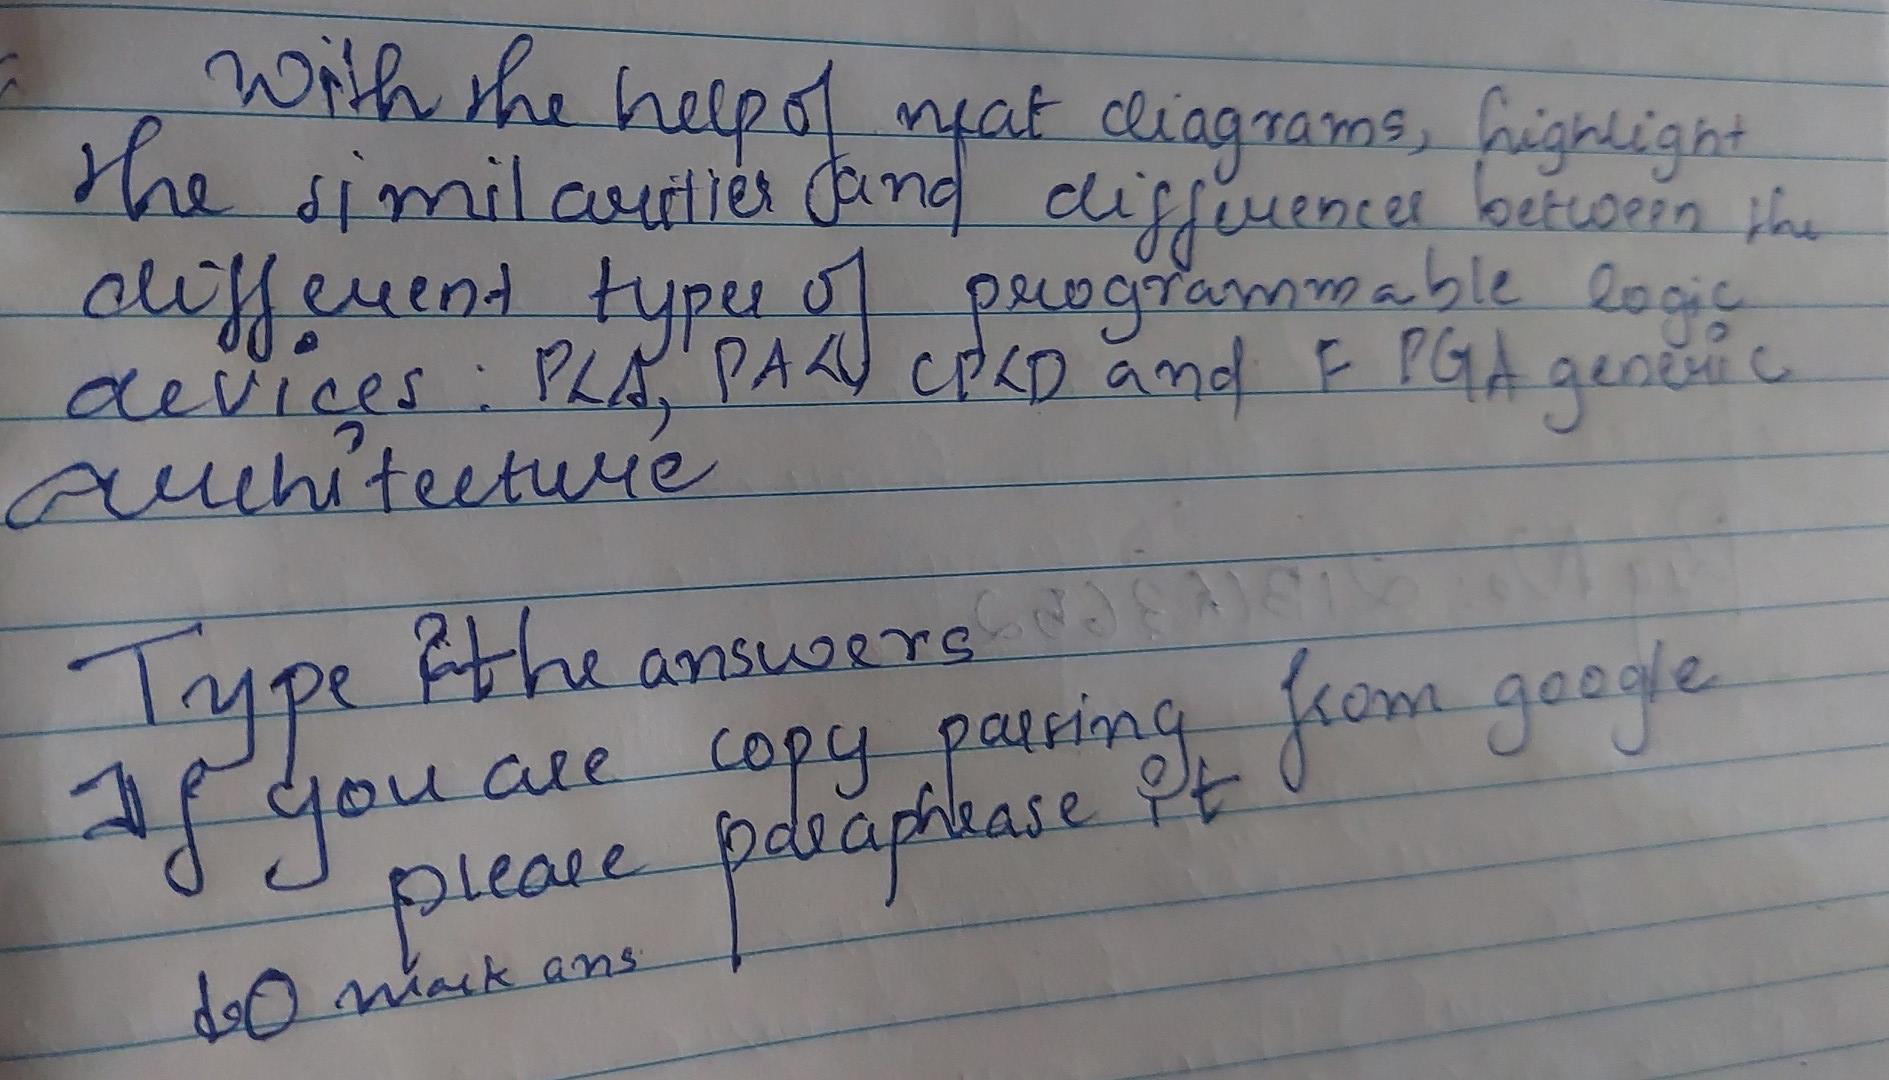 With the help of neat diagrams, highlight
the similarities and differences between the
different types of programmable logic
devices: PLA, PAL, CPLD and FPGA generic
architecture
Type the answers
If you are copy pasting from google
please paraphrase it
mark ans